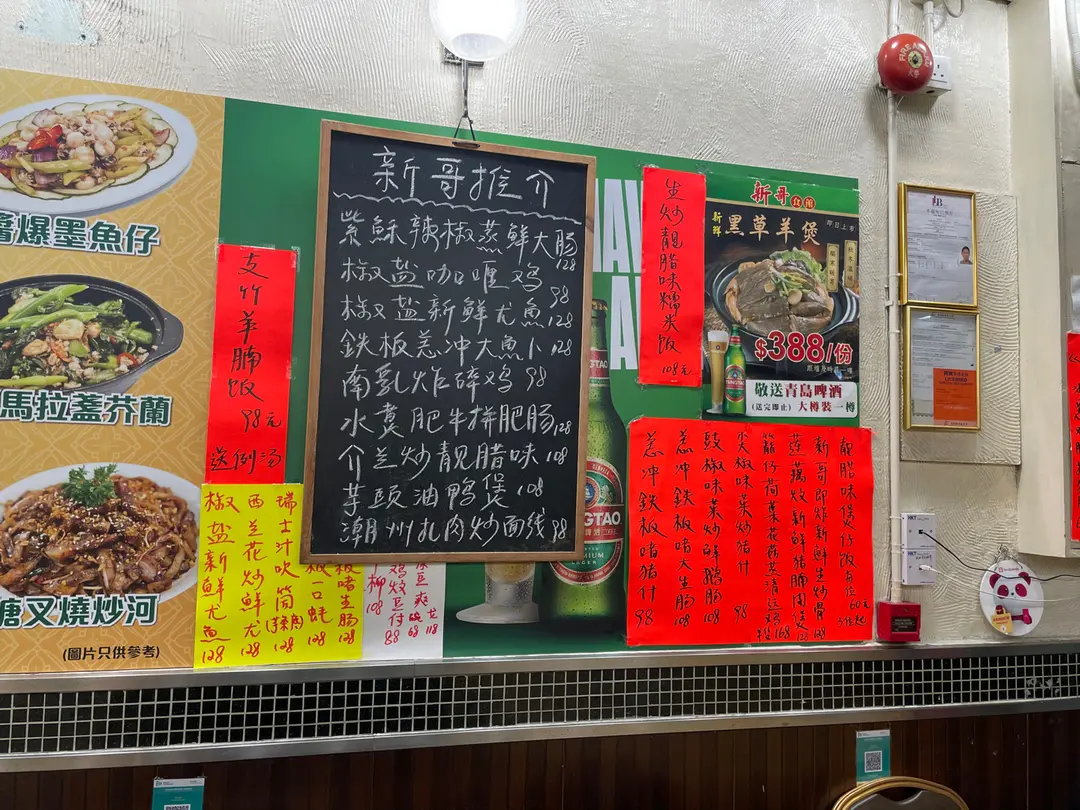 醬爆墨魚仔
馬拉盞芥蘭
叉燒炒河
(圖片只供參考)
支竹羊腩飯
98元
送例汤
新哥推介
紫蘇辣椒蒸鮮大肠 128
椒盐咖喱鸡 98
椒盐新鮮尤魚 128
鉄板葱冲大魚卜 128
南乳炸碎鸡 98
水煑肥牛拼肥肠 128
介兰炒靓腊味 108
芋頭油鴨煲 108
潮州扎肉炒面线 98
生炒靓腊味糯米飯
108元
新哥食館
新鮮
黑草羊煲
即日上市
$388/份
敬送青島啤酒
(送完即止) 大樽裝一樽
靓腊味煲仔饭每位60元
新哥即炸新鮮生炒骨 128
莲藕炆新鮮猪腩肉煲 128
籠仔荷葉花菇蒸清远鸡 168
尖椒味菜炒猪什 98
豉椒味菜炒鮮鵝肠 108
葱冲鉄板啫大生肠 108
葱冲鉄板啫猪什 98
瑞士汁吹筒 128
西兰花炒鮮尤 128
椒盐新鮮尤魚 128
一口蚝 128
啫生肠 128
柳 108
88
68
118
TSINGTAO
FIRE ALARM
HKT
HKT